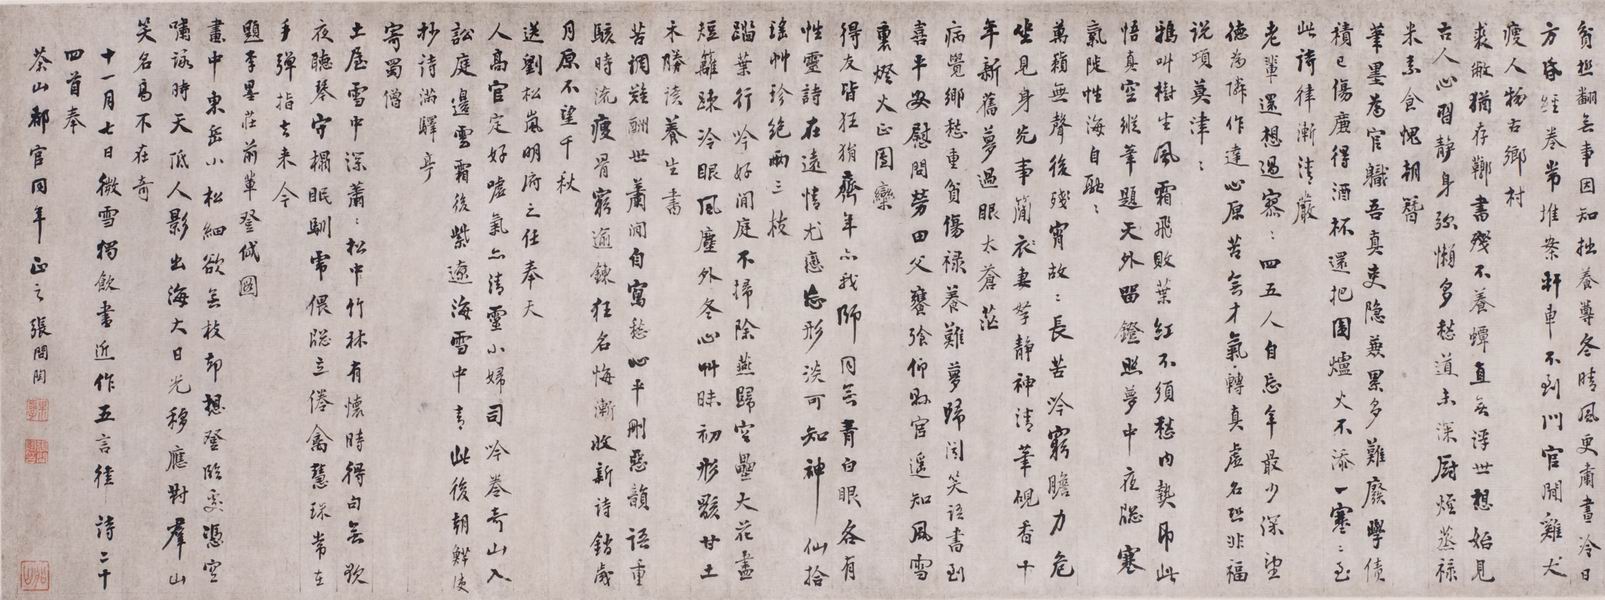 貧
翻無事因知拙養尊冬晴風更肅晝冷日
方昏經卷常堆案軒車不到門官閒雞犬
瘦人物古鄉村
裘敝猶存鄰書殘不養蟫直無浮世想始見
古人心習靜身弥懶多愁道未深厨煙蒸禄
米素食愧朝簪
筆墨為官職吾真吏隐兼累多難廢學債
積已傷廉得酒杯還把圍爐火不添一寒至
此詩律漸清嚴
老輩還想過寥〻四五人自忘年最少深望
德為隣作達心原苦無才氣轉真虛名恐非福
说項莫津〻
鴉叫樹生風霜飛敗葉紅不須愁内熱即此
悟真空縱筆題天外留鐙照夢中夜聦寒
氣陡性海自融〻
萬籟無聲後殘宵故〻長苦吟窮膽力危
坐見身光事簡衣妻孥静神清筆硯香十
年新舊夢過眼太蒼茫
病覺鄉愁重貧傷禄養難夢歸闻笑語書到
喜平安慰問勞田父饔飱仰縣官遥知風雪
裏燈火正團欒
得友皆狂狷齊年亦我師同無青白眼各有
性靈詩在遠情尤戀忘形淡可知神仙拾
瑶艸珍絕兩三枝
蹋葉行吟好閒庭不掃除燕歸空壘大花盡
短籬疎冷眼風塵外冬心艸昧初形骸甘土
木勝读養生書
苦調難酬世蕭閒自寫愁心平刪惡韻語重
駭時流瘦骨窮逾鍊狂名悔漸收新詩銷歲
月原不望千秋
送劉松嵐明府之任奉天
人高官定好噓氣亦清靈小婦司吟卷奇山入
訟庭邊雲霜後紫遼海雪中青此後朝鮮使
抄诗滿驛亭
寄蜀僧
土屋雪中深蕭〻松中竹林有懷時得句無歌
夜聽琴守榻眠馴虎偎聦立倦禽慧珠常在
手彈指去来今
題李墨莊前輩登岱圖
畫中東岳小松細欲無枝却想登臨處憑空
嘯詠時天低人影出海大日光移應對群山
笑名高不在奇
十一月七日微雪獨飲書近作五言律詩二十
四首奉
茶山都官同年正之張問陶